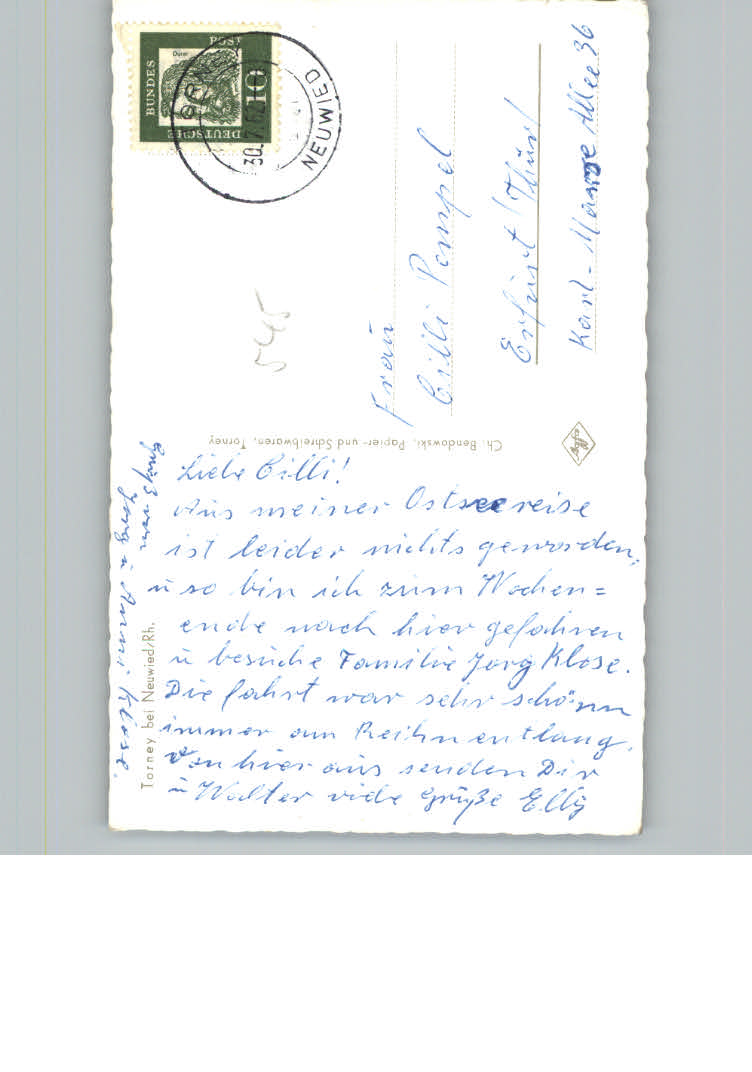 Liebe Cilli!
Aus meiner Ostseereise
ist leider nichts geworden,
u so bin ich zum Wochen=
ende nach hier gefahren
u besuche Familie Jorg Klose.
Die fahrt war sehr schön
immer am Reihn entlang.
Von hier aus senden Dir
u Walter viele Grüße Elly
Grüße von
Jorg u Anni Klose.
Torney bei Neuwied/Rh.
Ch. Bendowski, Papier- und Schreibwaren, Torney
545
DEUTSCHE
BUNDES
POST
Dürer
10
30.7.62
NEUWIED
Frau
Cilli Pempel
Erfurt/Thür
Karl-Marx Allee 36